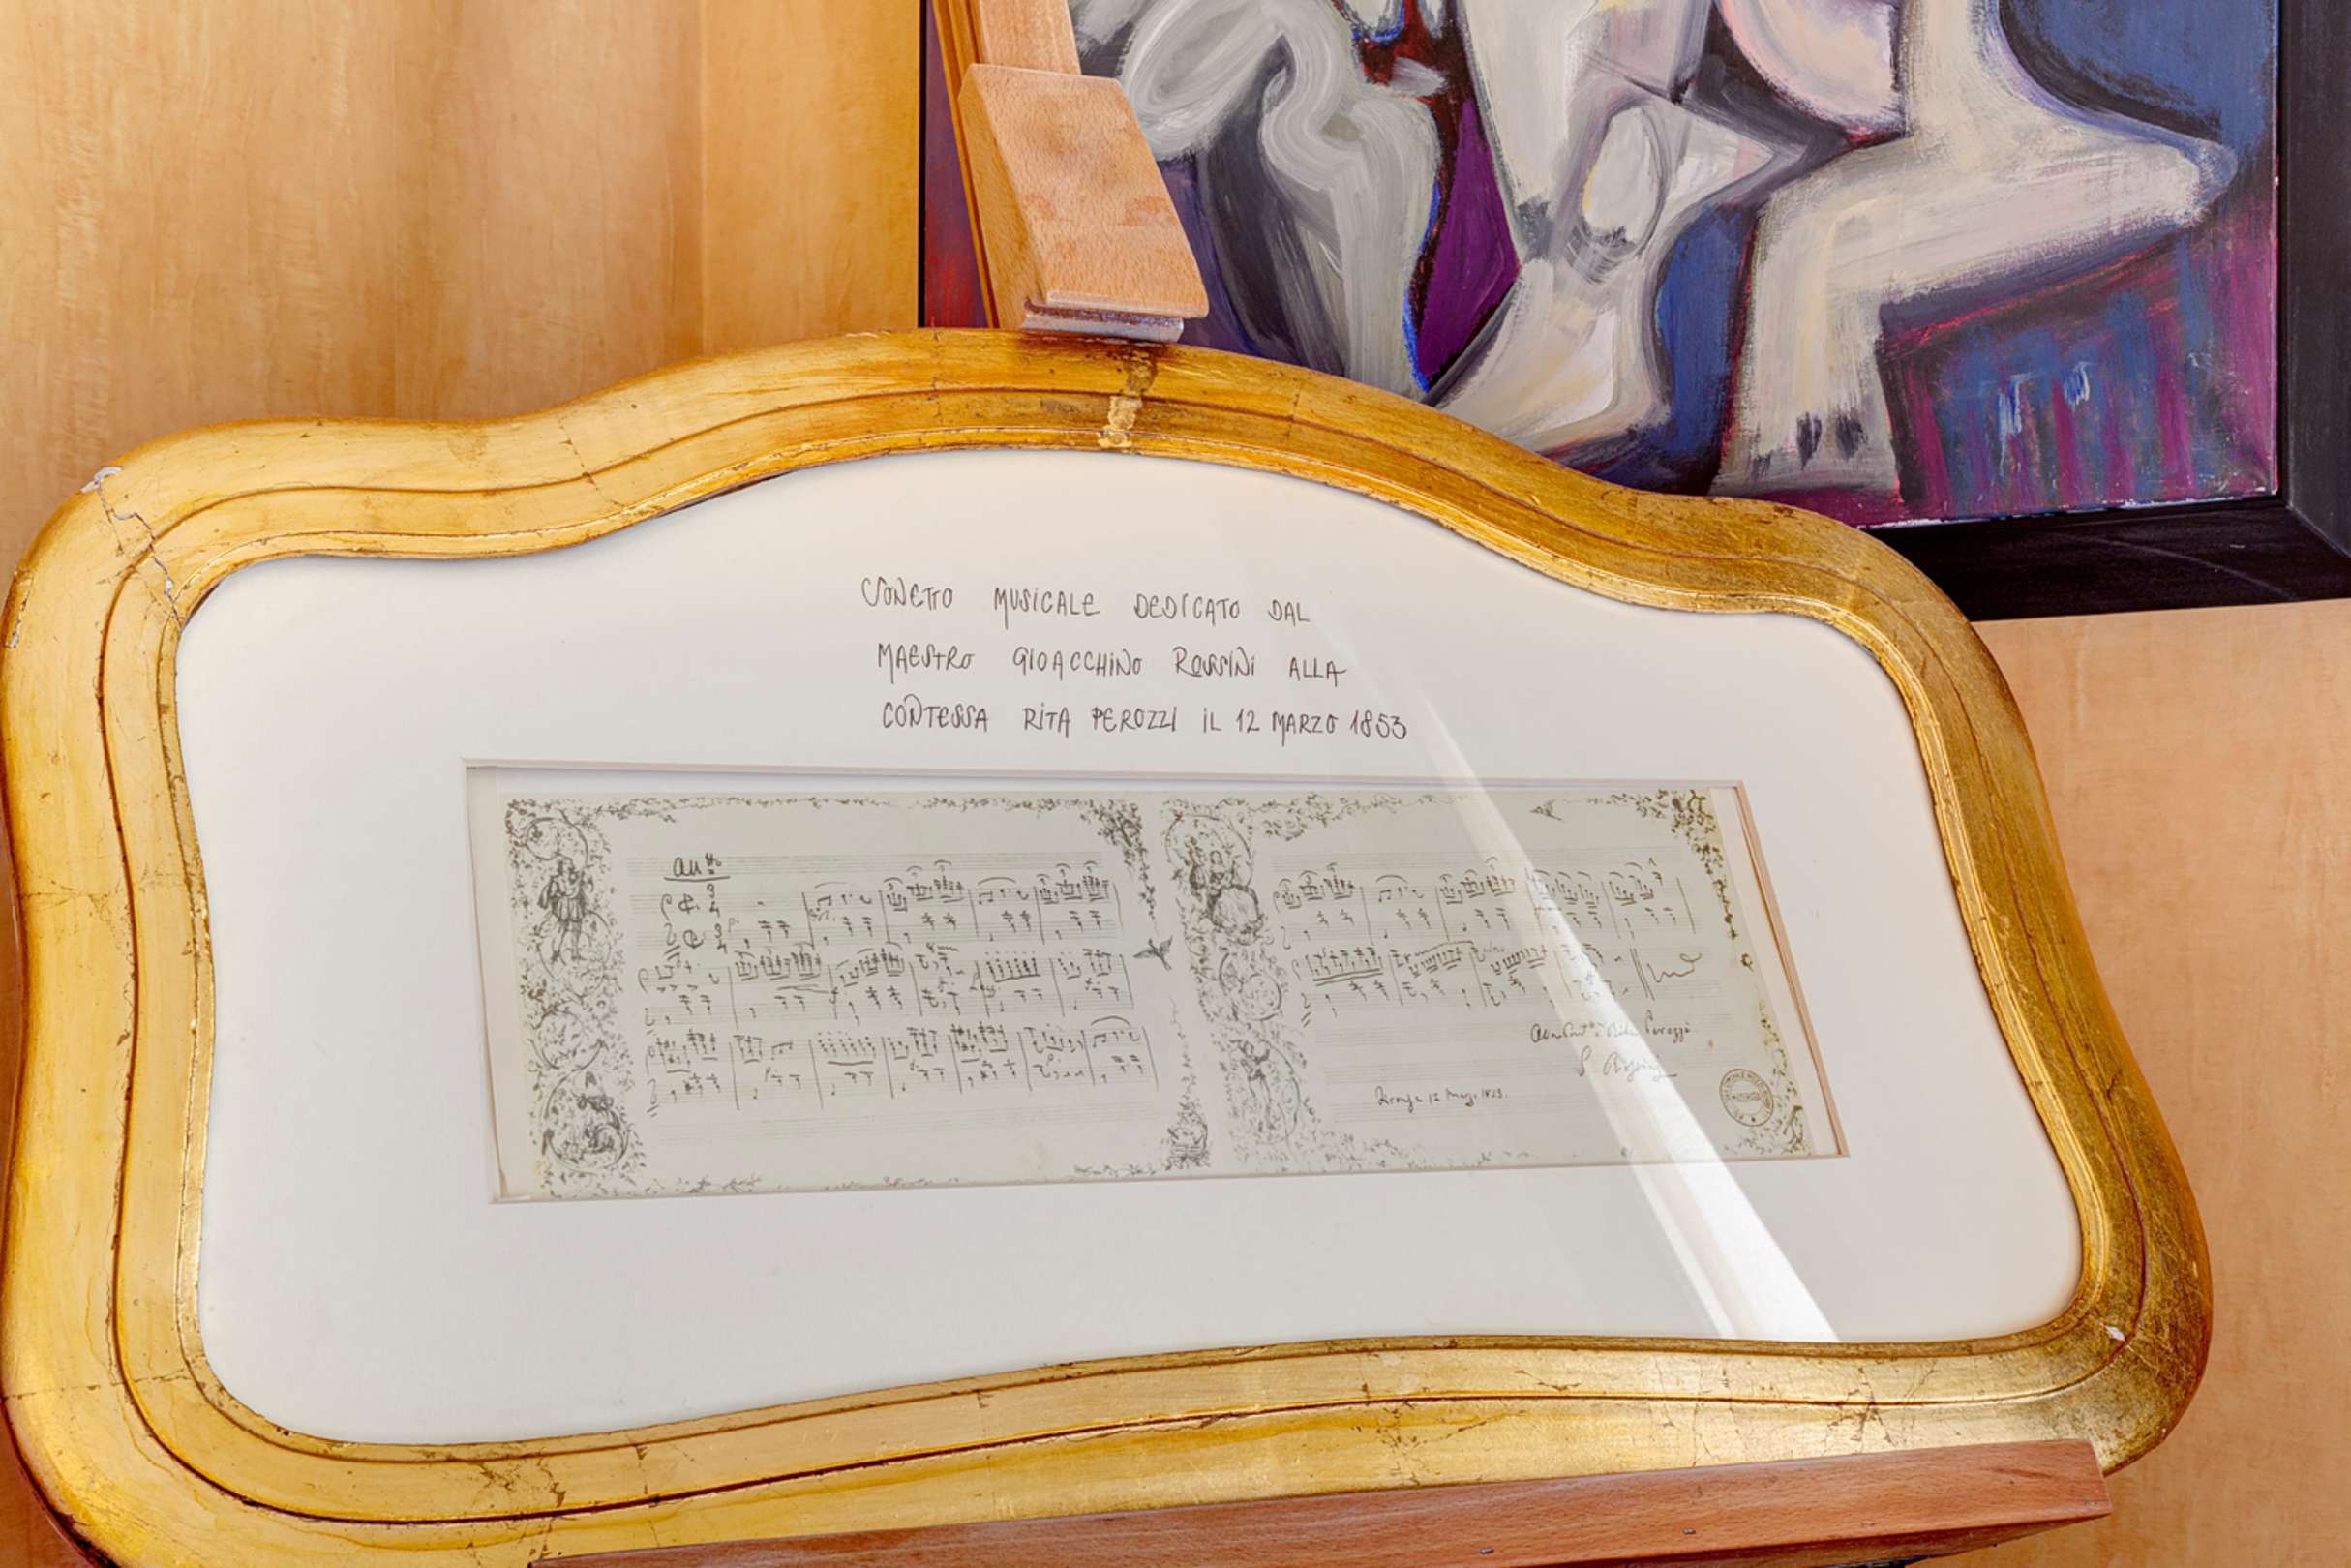 SONETTO MUSICALE DEDICATO DAL
MAESTRO GIOACCHINO ROSSINI ALLA
CONTESSA RITA PEROZZI IL 12 MARZO 1853
And.no
Rita Perozzi
G Rossini
12 1853.